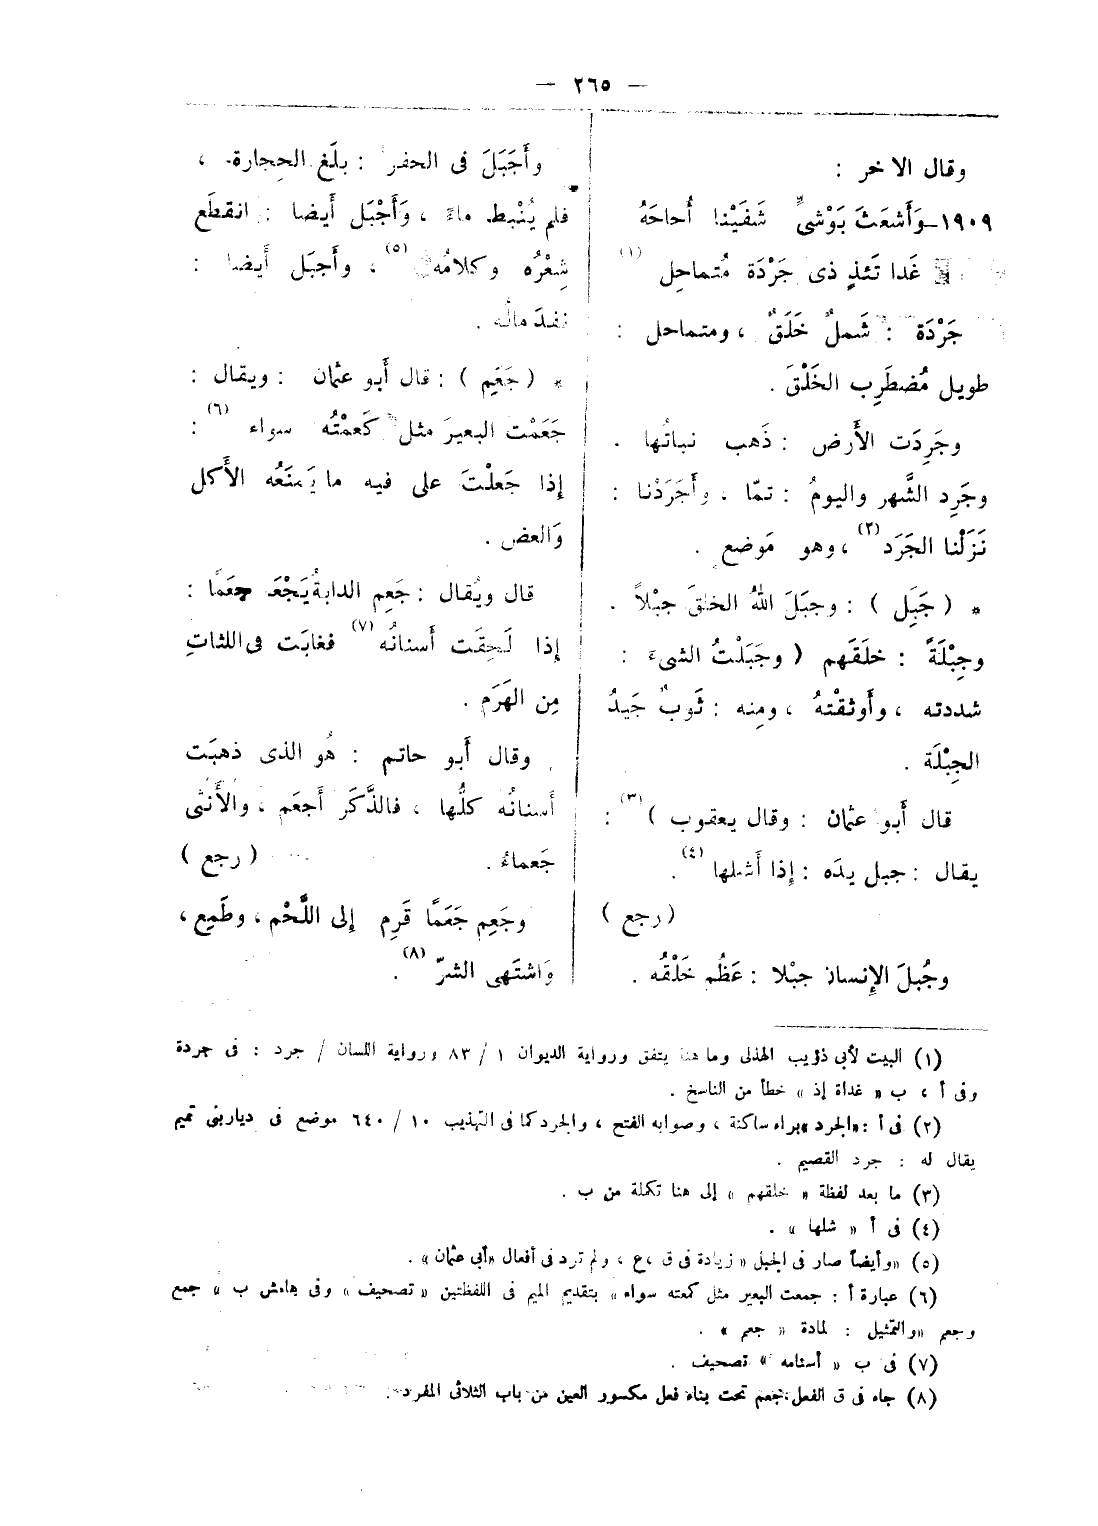 — ٢٦٥ —
وقال الاخر :
١٩٠٩ــوَأَشعَثَ بَوْشىٍّ شَفَيْنا أُحاحَهُ
غَدا تَئذٍ ذى جَرْدَة مُتماحِل (١)
جَرْدَة : شَملٌ خَلَقٌ ، ومتماحل :
طويل مُضطَرِب الخَلْقَ .
وجَرِدَت الأَرض : ذَهب نباتُها .
وجَرِد الشَّهر واليومُ : تمّا ، وأَجَرَدْنا :
نَزَلْنا الجَرَد (٢) ، وهو مَوضع .
* ( جَبَل ) : وجبَلَ اللهُ الخلقَ جبْلاً .
وجِبْلَةً : خلقَهم ( وجَبَلْتُ الشىءَ :
شددته ، وأَوثقْتهُ ، ومنه : ثَوبٌ جَيدُ
الجِبْلَة .
قال أَبو عثمان : وقال يعقوب ) (٣) :
يقال : جبل يدَه : إِذا أَشلها (٤) .
( رجع )
وجُبلَ الإِنسان جبْلا : عَظُم خَلْقُه .
وأَجَبَلَ فى الحفر : بلَغ الحِجارة ،
فلم يُنْبط ماءً ، وَأَجْبَل أَيضا : انقطَع
شِعْرُه وكلامُه (٥) ، وأَجبَل أَيضا :
نفدَ مالُه .
* ( جَعَم ) : قال أَبو عثمان : ويقال :
جَعَمْت البعيرَ مثل كَعمْتُه سواء (٦) :
إِذا جَعلْتَ على فيه ما يَمنَعُه الأَكل
وَالعض .
قال ويُقال : جَعِم الدابةُ يَجْعَ جعَمًا :
إِذا لَحِقَت أَسنانُه (٧) فغابَت فى اللثاتِ
مِن الهَرَم .
وقال أَبو حاتم : هُو الذى ذهبَت
أَسنانُه كلُّها ، فالذَّكَر أَجعَم ، والأُنثى
جَعماءُ . ( رجع )
وجَعِم جَعَمًا قَرِم إِلى اللَّحْم ، وطَمِع ،
وَاشتَهى الشرّ (٨) .
(١) البيت لأبى ذؤيب الهذلى وما هنا يتفق ورواية الديوان ١ / ٨٣ ورواية اللسان / جرد : فى جردة
وفى أ ، ب « غداة إذ » خطأ من الناسخ .
(٢) فى أ : «الجرد »براء ساكنة ، وصوابه الفتح ، والجرد كما فى التهذيب ١٠ / ٦٤٠ موضع فى ديار بنى تميم
يقال له : جرد القصيم .
(٣) ما بعد لفظة « خلقهم » إلى هنا تكملة من ب .
(٤) فى أ « شلها » .
(٥) «وأيضاً صار فى الجبل « زيادة فى ق ،ع ، ولم ترد فى أفعال «أبى عثمان» .
(٦) عبارة أ : جمعت البعير مثل كمعته سواء » بتقديم الميم فى اللفظتين «تصحيف» وفى هامش ب « جمع
وجعم «والتمثيل : لمادة « جعم » .
(٧) فى ب « أسنامه » تصحيف .
(٨) جاء فى ق الفعل : جعم تحت بناء فعل مكسور العين من باب الثلاثى المفرد .